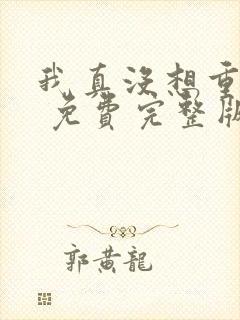 我真沒想重
免費完整版
郭黃龍